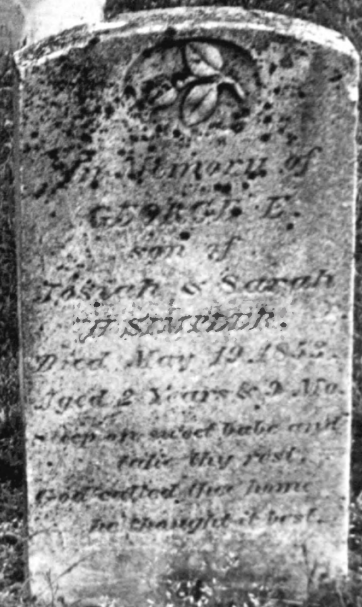 In Memory of
GEORGE E.
son of
Josiah & Sarah
H SIMPLER.
Died May 19, 1852.
Aged 2 Years & 9 Mo.
Sleep on sweet babe and
take thy rest,
God called thee home
he thought it best.